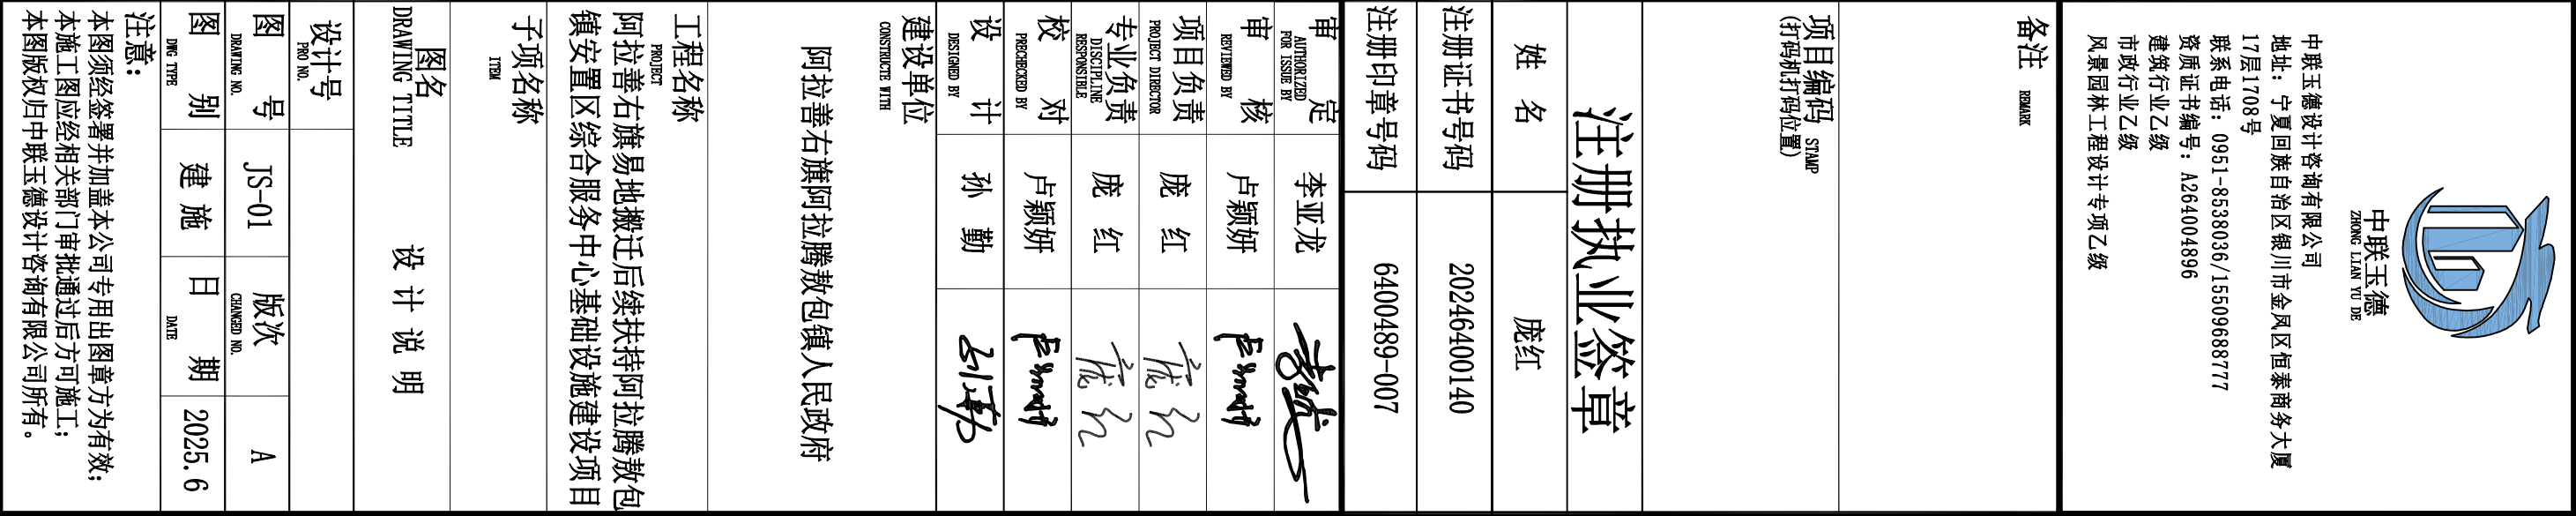 中联玉德
ZHONG LIAN YU DE
中联玉德设计咨询有限公司
地址：宁夏回族自治区银川市金凤区恒泰商务大厦
17层1708号
联系电话：0951-8538036/15509688777
资质证书编号：A264004896
建筑行业乙级
市政行业乙级
风景园林工程设计专项乙级
备注 REMARK
项目编码 STAMP
(打码机打码位置)
注册执业签章
姓 名 庞红
注册证书号码 20246400140
注册印章号码 6400489-007
审 定 李亚龙
AUTHORIZED
FOR ISSUE BY
审 核 卢颖妍
REVIEWED BY
项目负责 庞 红
PROJECT DIRECTOR
专业负责 庞 红
DISCIPLINE
RESPONSIBLE
校 对 卢颖妍
PRECHECKED BY
设 计 孙 勤
DESIGNED BY
建设单位
CONSTRUCTE WITH
阿拉善右旗阿拉腾敖包镇人民政府
工程名称
PROJECT
阿拉善右旗易地搬迁后续扶持阿拉腾敖包
镇安置区综合服务中心基础设施建设项目
子项名称
ITEM
图名
DRAWING TITLE
设 计 说 明
设计号
PRO NO.
图 号 JS-01 版次 A
DRAWING NO. CHANGED NO.
图 别 建 施 日 期 2025.6
DWG TYPE DATE
注意：
本图须经签署并加盖本公司专用出图章方为有效；
本施工图应经相关部门审批通过后方可施工；
本图版权归中联玉德设计咨询有限公司所有。